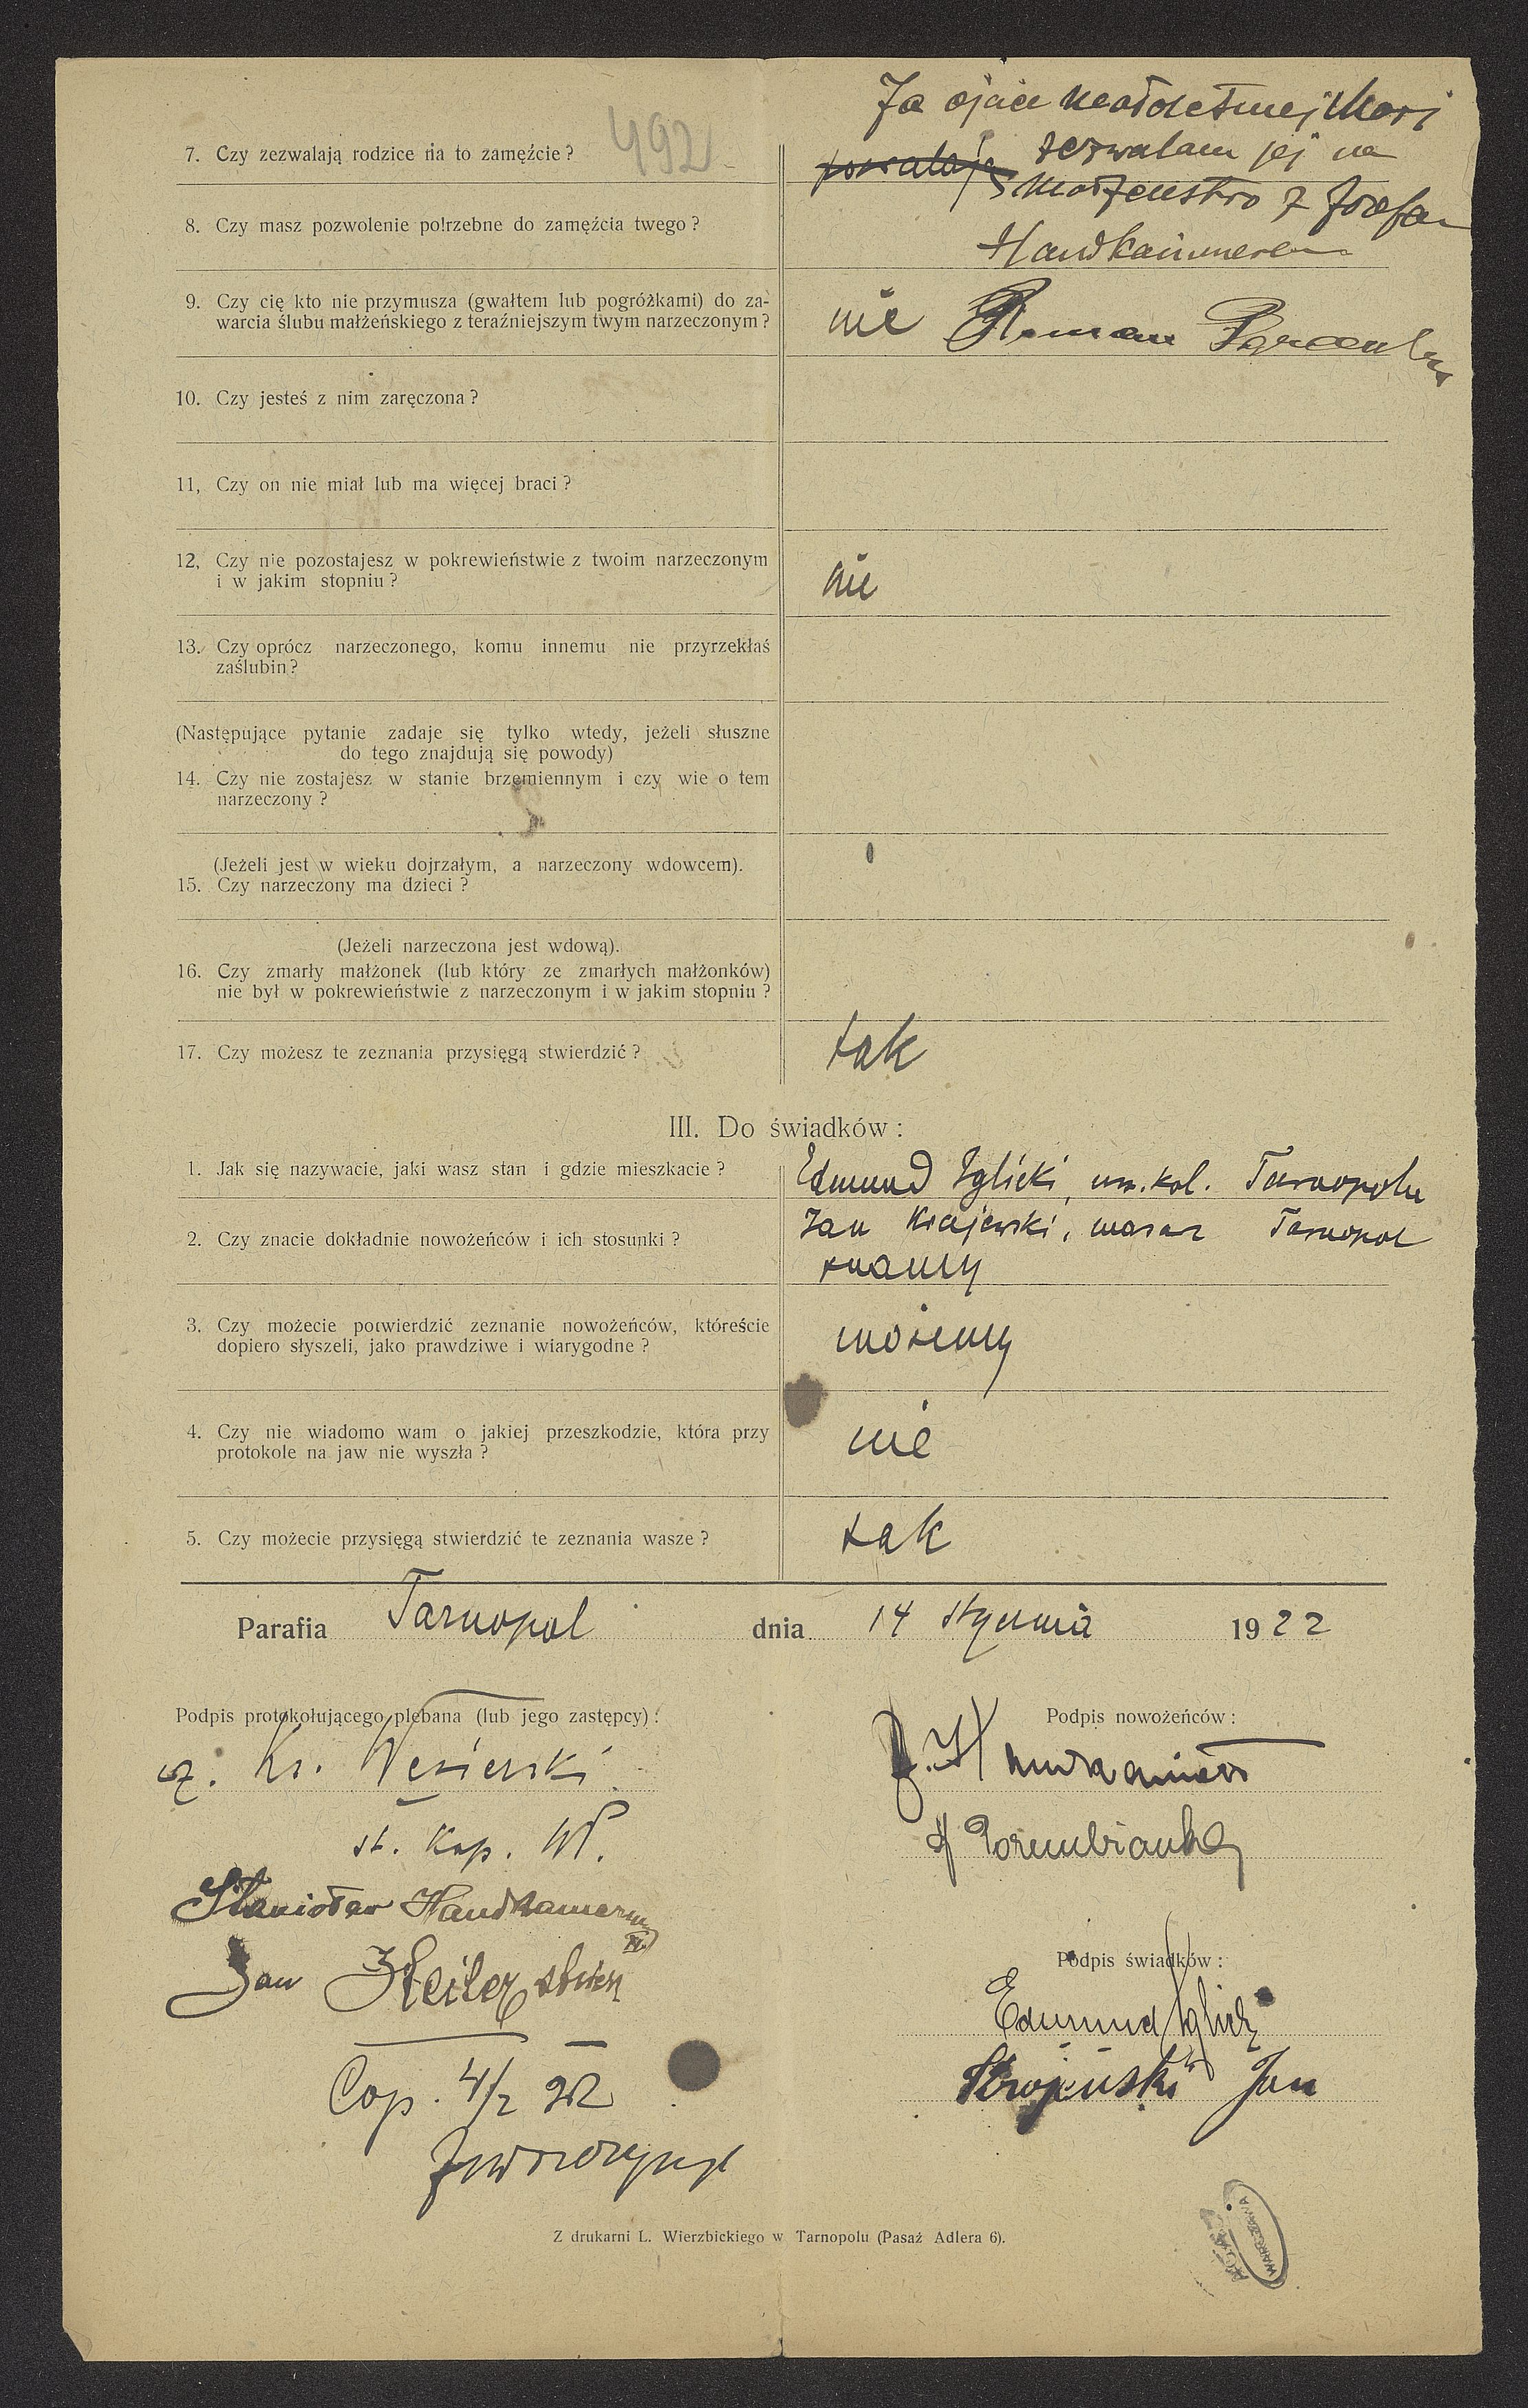 492
Ja ojciec małoletniej Marji
7. Czy zezwalają rodzice na to zamęźcie?
zezwalam jej na
małżeństwo z Józefem
8. Czy masz pozwolenie potrzebne do zamęźcia twego?
Handkammerem
9. Czy cię kto nie przymusza (gwałtem lub pogróżkami) do za-
warcia ślubu małżeńskiego z teraźniejszym twym narzeczonym?
nie Roman
10. Czy jesteś z nim zaręczona?
11, Czy on nie miał lub ma więcej braci?
12, Czy nie pozostajesz w pokrewieństwie z twoim narzeczonym
i w jakim stopniu?
nie
13. Czy oprócz narzeczonego, komu innemu nie przyrzekłaś
zaślubin?
(Następujące pytanie zadaje się tylko wtedy, jeżeli słuszne
do tego znajdują się powody)
14. Czy nie zostajesz w stanie brzemiennym i czy wie o tem
narzeczony?
(Jeżeli jest w wieku dojrzałym, a narzeczony wdowcem).
15. Czy narzeczony ma dzieci?
(Jeżeli narzeczona jest wdową).
16. Czy zmarły małżonek (lub który ze zmarłych małżonków)
nie był w pokrewieństwie z narzeczonym i w jakim stopniu?
17. Czy możesz te zeznania przysięgą stwierdzić?
tak
III. Do świadków:
1. Jak się nazywacie, jaki wasz stan i gdzie mieszkacie?
Edmund Iglicki, um. kol. Tarnopolu
Jan Tarnopol
2. Czy znacie dokładnie nowożeńców i ich stosunki?
znamy
3. Czy możecie potwierdzić zeznanie nowożeńców, któreście
dopiero słyszeli, jako prawdziwe i wiarygodne?
możemy
4. Czy nie wiadomo wam o jakiej przeszkodzie, która przy
protokole na jaw nie wyszła?
nie
5. Czy możecie przysięgą stwierdzić te zeznania wasze?
tak
Parafia Tarnopol dnia 14 stycznia 1922
Podpis protokołującego plebana (lub jego zastępcy):
Ks. Wesierski
st. kap. WP.
Stanisław Handkammer
Jan
Cop. 4/2 22
Podpis nowożeńców:
J. Handkammer
Porembianka
Podpis świadków:
Edmund Iglicki
Jan
Z drukarni L. Wierzbickiego w Tarnopolu (Pasaż Adlera 6).
WARSZAWA